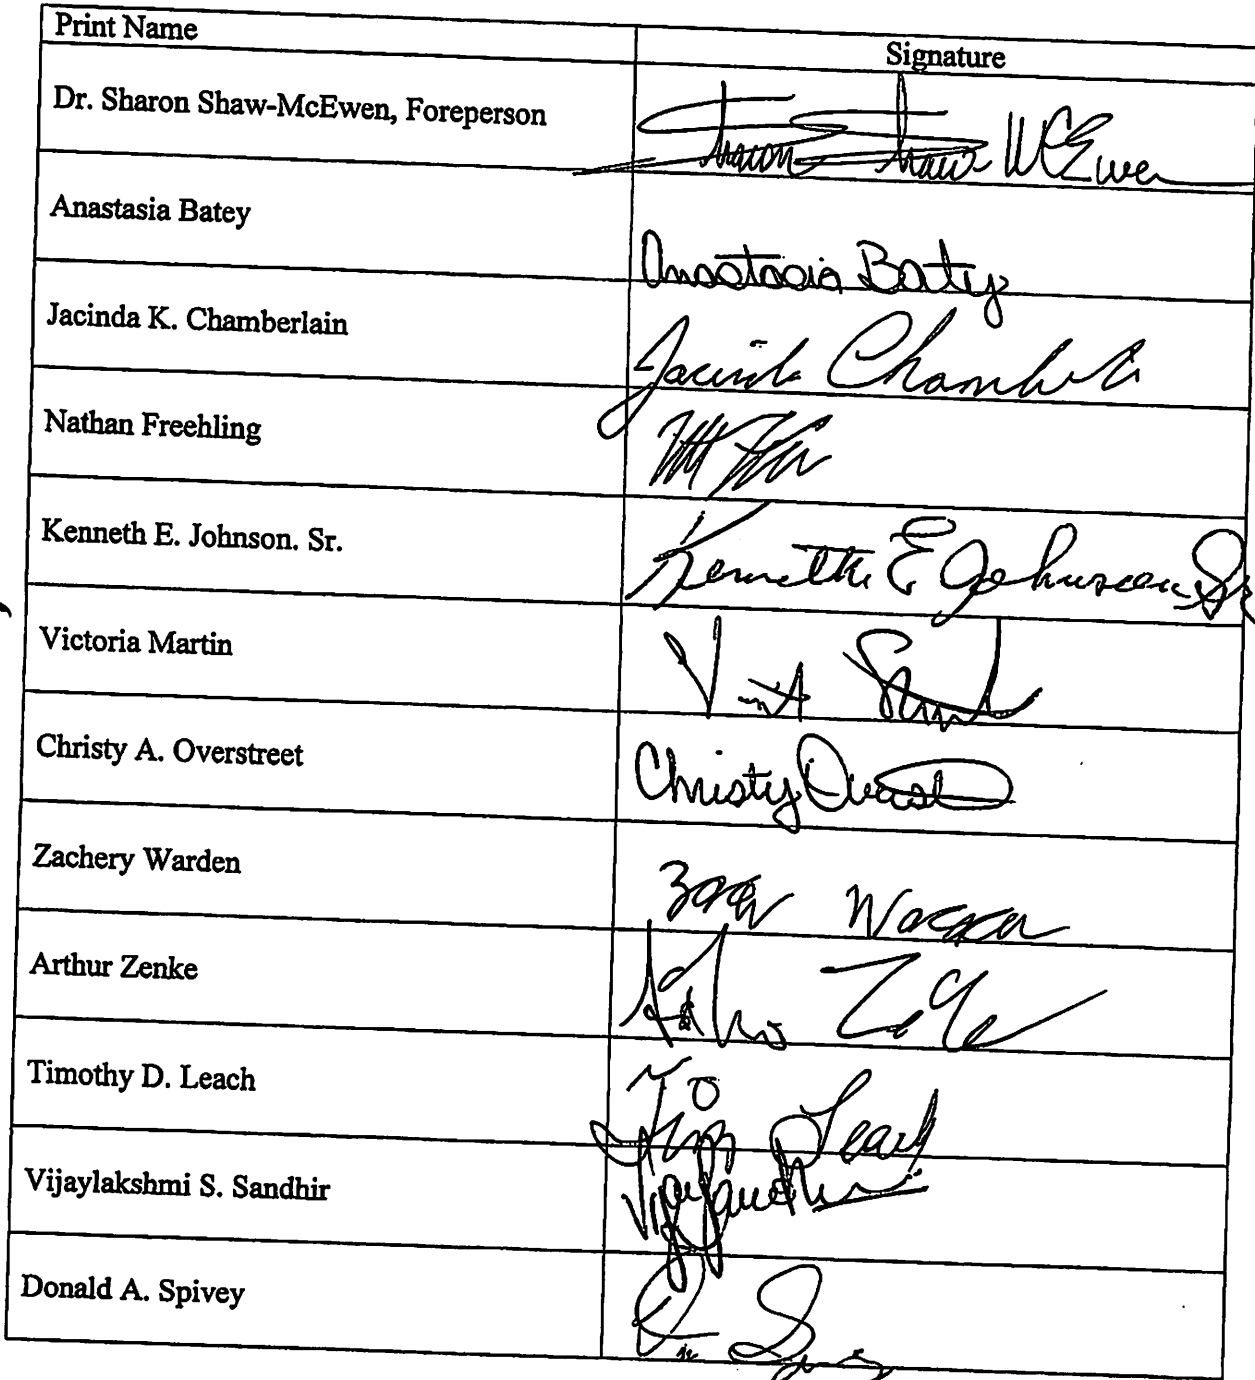 Print Name Signature
Dr. Sharon Shaw-McEwen, Foreperson Sharon Shaw-McEwen
Anastasia Batey Anastasia Batey
Jacinda K. Chamberlain Jacinda Chamberlain
Nathan Freehling
Kenneth E. Johnson. Sr. Kenneth E Johnson Sr
Victoria Martin
Christy A. Overstreet Christy
Zachery Warden
Arthur Zenke
Timothy D. Leach Tim D Leach
Vijaylakshmi S. Sandhir
Donald A. Spivey